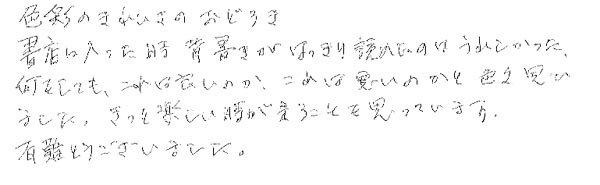 色彩のきれいさのおどろき
書店に入った時 背書きがはっきり読めたのはうれしかった、
何をしても、これは良いのか、これは悪いのかと色々思い
ました。きっと楽しい時が来ることを思っています。
有難とうございました。